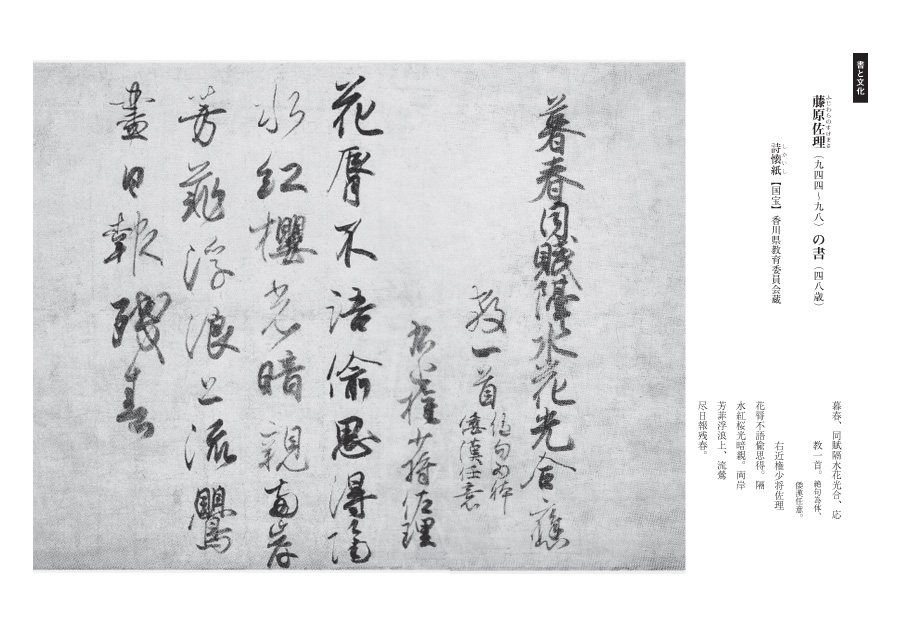 書と文化
藤原佐理（九四四～九八）の書（四八歳）
ふじわらのすけまさ
詩懐紙【国宝】 香川県教育委員会蔵
しかいし
暮春、同賦隔水花光合、応
教一首。絶句為体、
倭漢任意。
右近権少将佐理
花脣不語偸思得。隔
水紅桜光暗親。両岸
芳菲浮浪上、流鶯
尽日報残春。
暮春同賦隔水花光合應
教一首 絶句為体
倭漢任意
右近権少将佐理
花脣不語偸思得隔
水紅櫻光暗親両岸
芳菲浮浪上流鶯
盡日報殘春